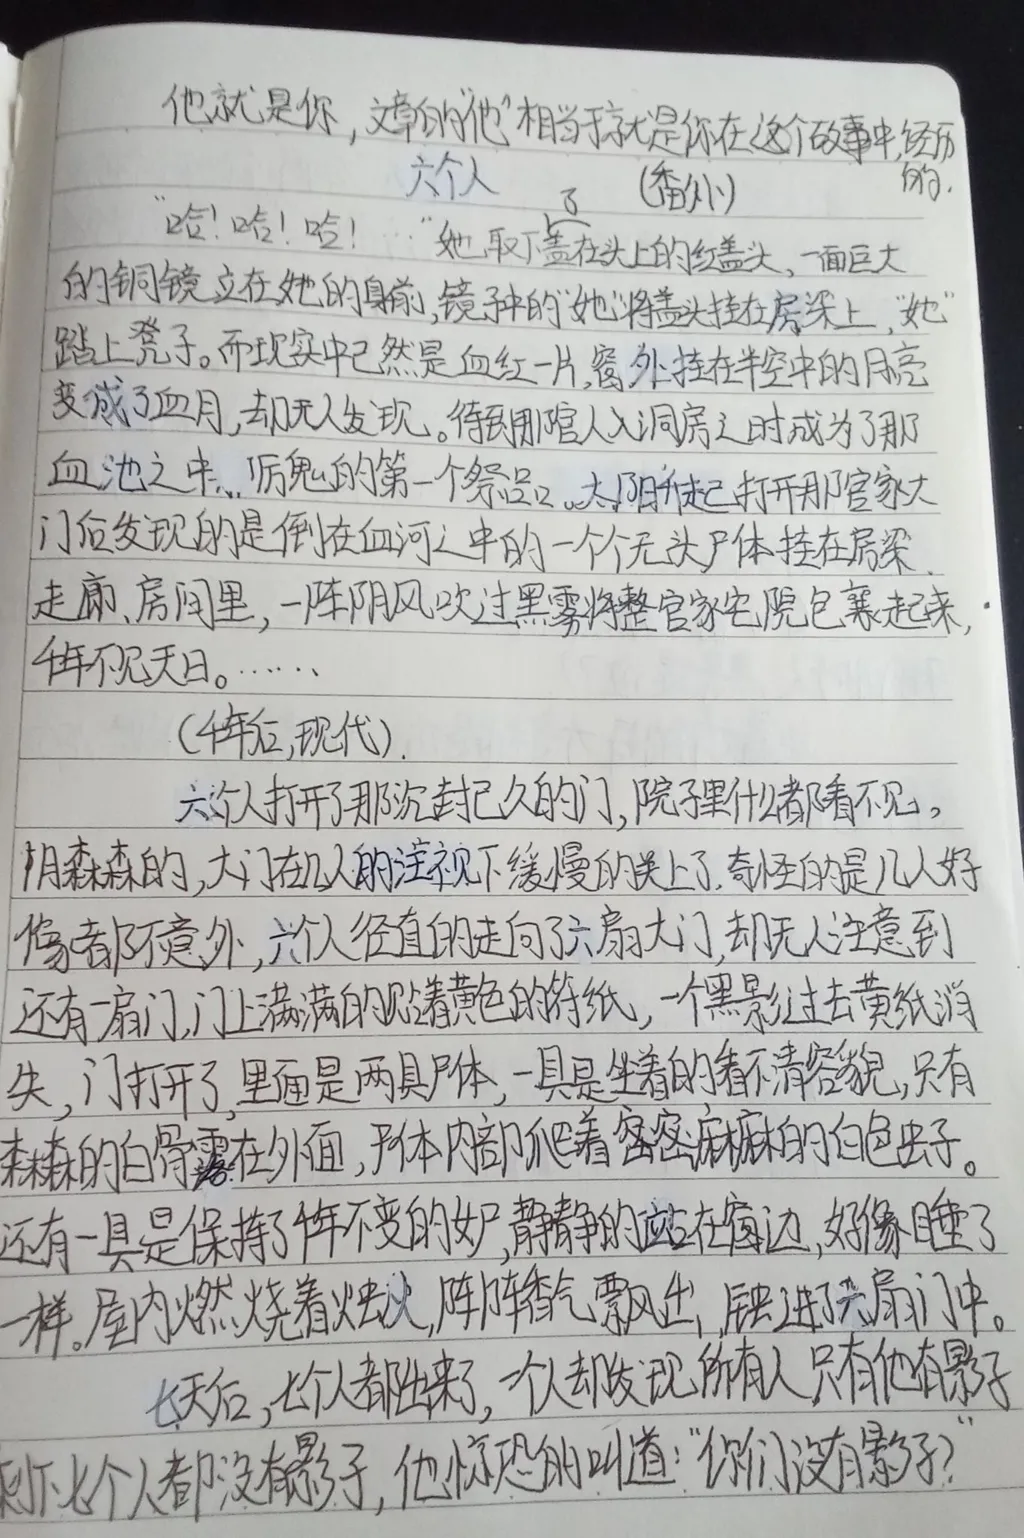 他就是你，文章的"他"相当于就是你在这个故事中,经历
的.
六个人 (番外)
"哈！哈！哈！……"她取下了盖在头上的红盖头，一面巨大
的铜镜立在她的身前,镜子中的"她"将盖头挂在房梁上,"她"
踏上凳子。而现实中已然是血红一片,窗外挂在半空中的月亮
变成了血月,却无人发现。待到那官人入洞房之时成为了那
血池之中、厉鬼的第一个祭品。太阳升起打开那官家大
门后发现的是倒在血河之中的一个个无头尸体挂在房梁、
走廊、房间里，一阵阴风吹过黑雾将整官家宅院包裹起来,
千年不见天日。……
(千年后,现代).
六个人打开了那沉封已久的门,院子里什么都看不见。
阴森森的,大门在几人的注视下缓慢的关上了.奇怪的是几人好
像都不意外,六个人径直的走向了六扇大门,却无人注意到
还有一扇门,门上满满的贴着黄色的符纸，一个黑影过去黄纸消
失，门打开了,里面是两具尸体,一具是坐着的看不清容貌,只有
森森的白骨露在外面，尸体内部爬着密密麻麻的白色虫子。
还有一具是保持了千年不变的女尸,静静的站在窗边,好像睡了
一样。屋内燃烧着烛火,阵阵香气飘出,融进了六扇门中。
七天后,七个人都出来了,一个人却发现所有人只有他有影子
剩下七个人都没有影子,他惊恐的叫道:"你们没有影子?"